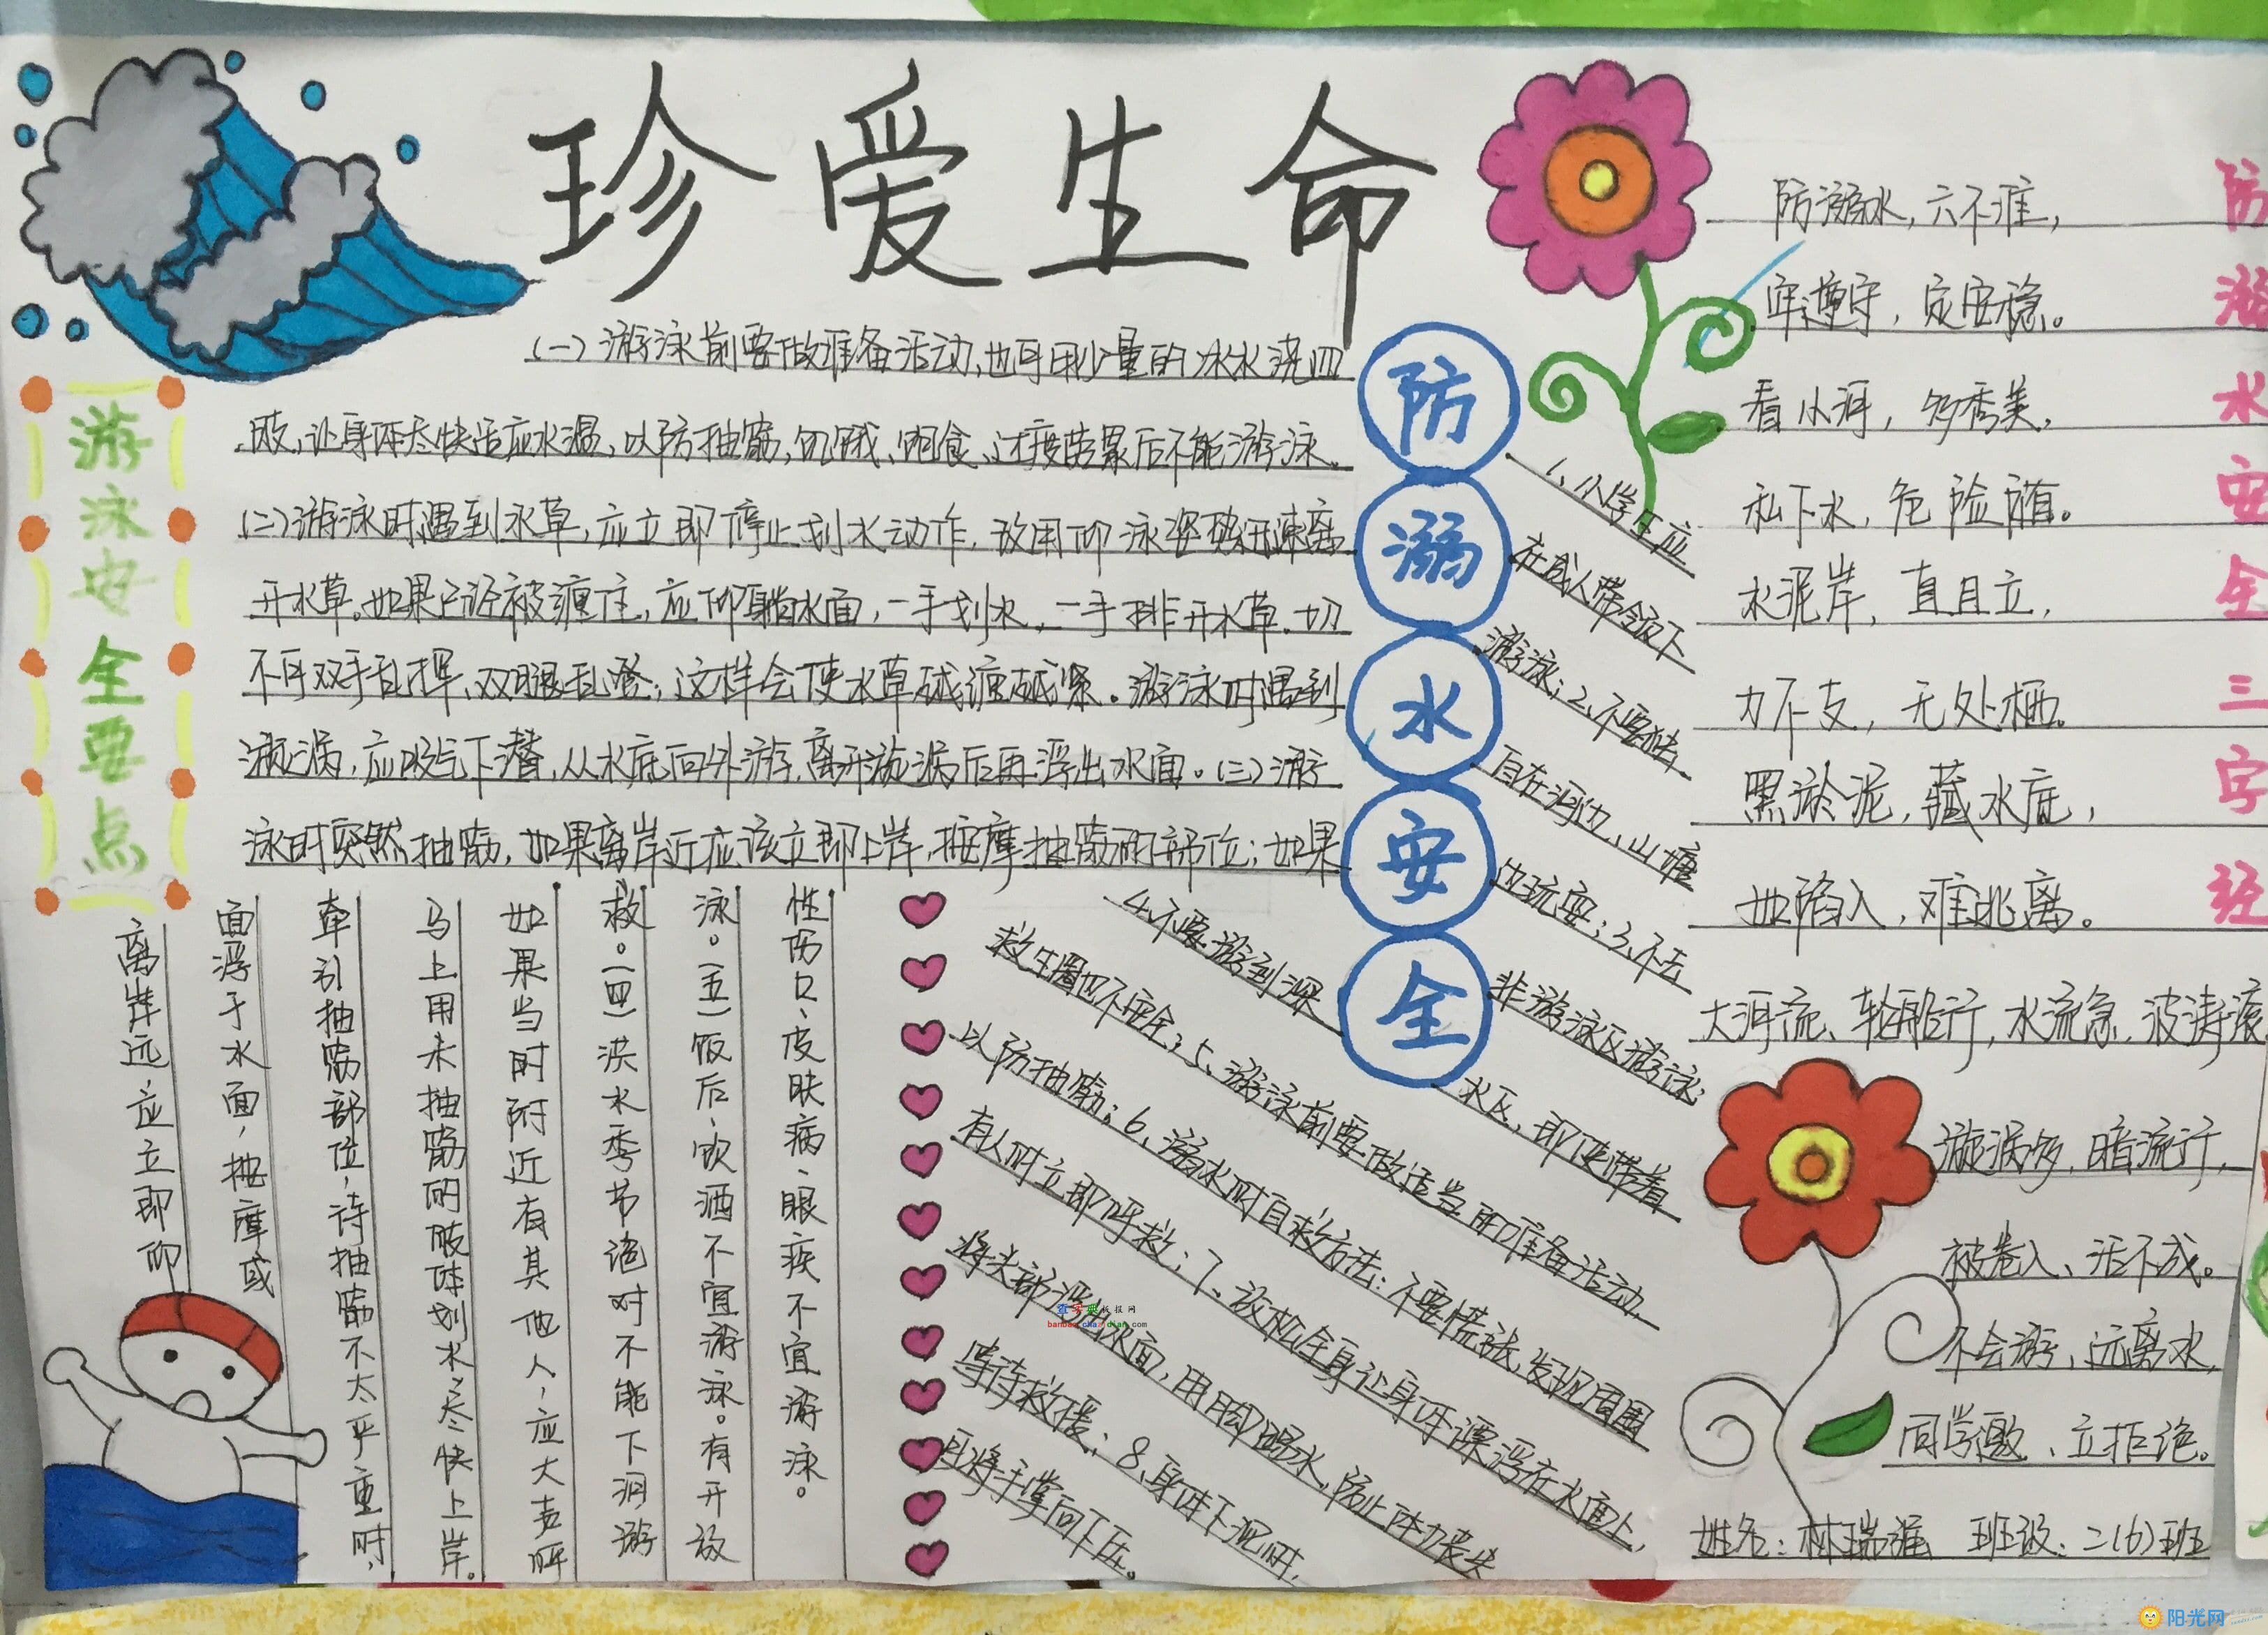 珍爱生命
游泳安全要点
(一)游泳前要做准备活动,也可用少量的冰水浇四
肢,让身体尽快适应水温,以防抽筋,饥饿、饱食、过度劳累后不能游泳。
(二)游泳时遇到水草,应立即停止划水动作,改用仰泳姿势迅速离
开水草。如果已经被缠住,应仰躺水面,一手划水,一手排开水草,切
不可双手乱挥、双腿乱登,这样会使水草越缠越紧。游泳时遇到
漩涡,应吸气下潜,从水底向外游,离开漩涡后再浮出水面。(三)游
泳时突然抽筋,如果离岸近应该立即上岸,按摩抽筋的部位;如果
离岸远,应立即仰
面浮于水面,按摩或
牵引抽筋部位,待抽筋不太严重时,
马上用未抽筋的肢体划水,尽快上岸。
如果当时附近有其他人,应大声呼
救。(四)洪水季节绝对不能下河游
泳。(五)饭后、饮酒不宜游泳。有开放
性伤口、皮肤病、眼疾不宜游泳。
防溺水安全
1、小学生应
在成人带领下
游泳;2、不要独
自在河边、山塘
边玩耍;3、不去
非游泳区游泳;
4、不要游到深
水区,即使带着
救生圈也不安全;5、游泳前要做适当的准备活动,
以防抽筋;6、溺水时自救方法:不要慌张,发现周围
有人时立即呼救;7、放松全身让身体漂浮在水面上,
将头部浮出水面,用脚踢水,防止体力丧失
等待救援;8、身体下沉时,
可将手掌向下压。
防溺水安全三字经
防溺水,六不准,
牢遵守,定安稳。
看小河,多秀美,
私下水,危险随。
水泥岸,直且立,
力不支,无处栖。
黑淤泥,藏水底,
如陷入,难逃离。
大河流、轮船行,水流急,波涛滚
漩涡多,暗流行,
被卷入、活不成。
不会游,远离水,
同学邀、立拒绝。
姓名:林瑞涵 班级:二(6)班
查字典板报网
banbao.chazidian.com
阳光网